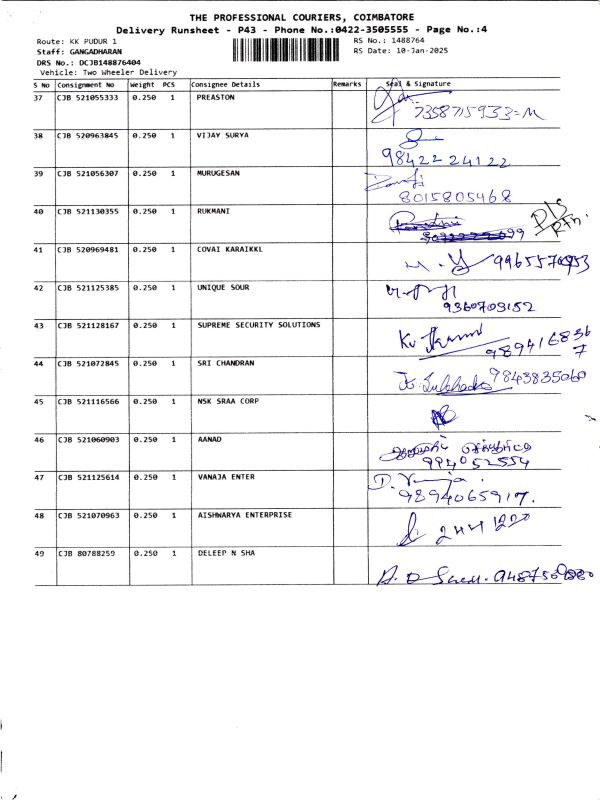 THE PROFESSIONAL COURIERS, COIMBATORE
Delivery Runsheet - P43 - Phone No.:0422-3505555 - Page No.:4
Route: KK PUDUR 1 RS No.: 1488764
Staff: GANGADHARAN RS Date: 10-Jan-2025
DRS No.: DCJB148876404
Vehicle: Two Wheeler Delivery
S No Consignment No Weight PCS Consignee Details Remarks Seal & Signature
37 CJB 521055333 0.250 1 PREASTON
7358715933=M
38 CJB 520963845 0.250 1 VIJAY SURYA
98422 24122
39 CJB 521056307 0.250 1 MURUGESAN
8015805468
40 CJB 521130355 0.250 1 RUKMANI
41 CJB 520969481 0.250 1 COVAI KARAIKKL
42 CJB 521125385 0.250 1 UNIQUE SOUR
9360709152
43 CJB 521128167 0.250 1 SUPREME SECURITY SOLUTIONS
989416836
7
44 CJB 521072845 0.250 1 SRI CHANDRAN
9843835060
45 CJB 521116566 0.250 1 NSK SRAA CORP
46 CJB 521060903 0.250 1 AANAD
994052554
47 CJB 521125614 0.250 1 VANAJA ENTER
9894065917.
48 CJB 521070963 0.250 1 AISHWARYA ENTERPRISE
244 1220
49 CJB 80788259 0.250 1 DELEEP N SHA